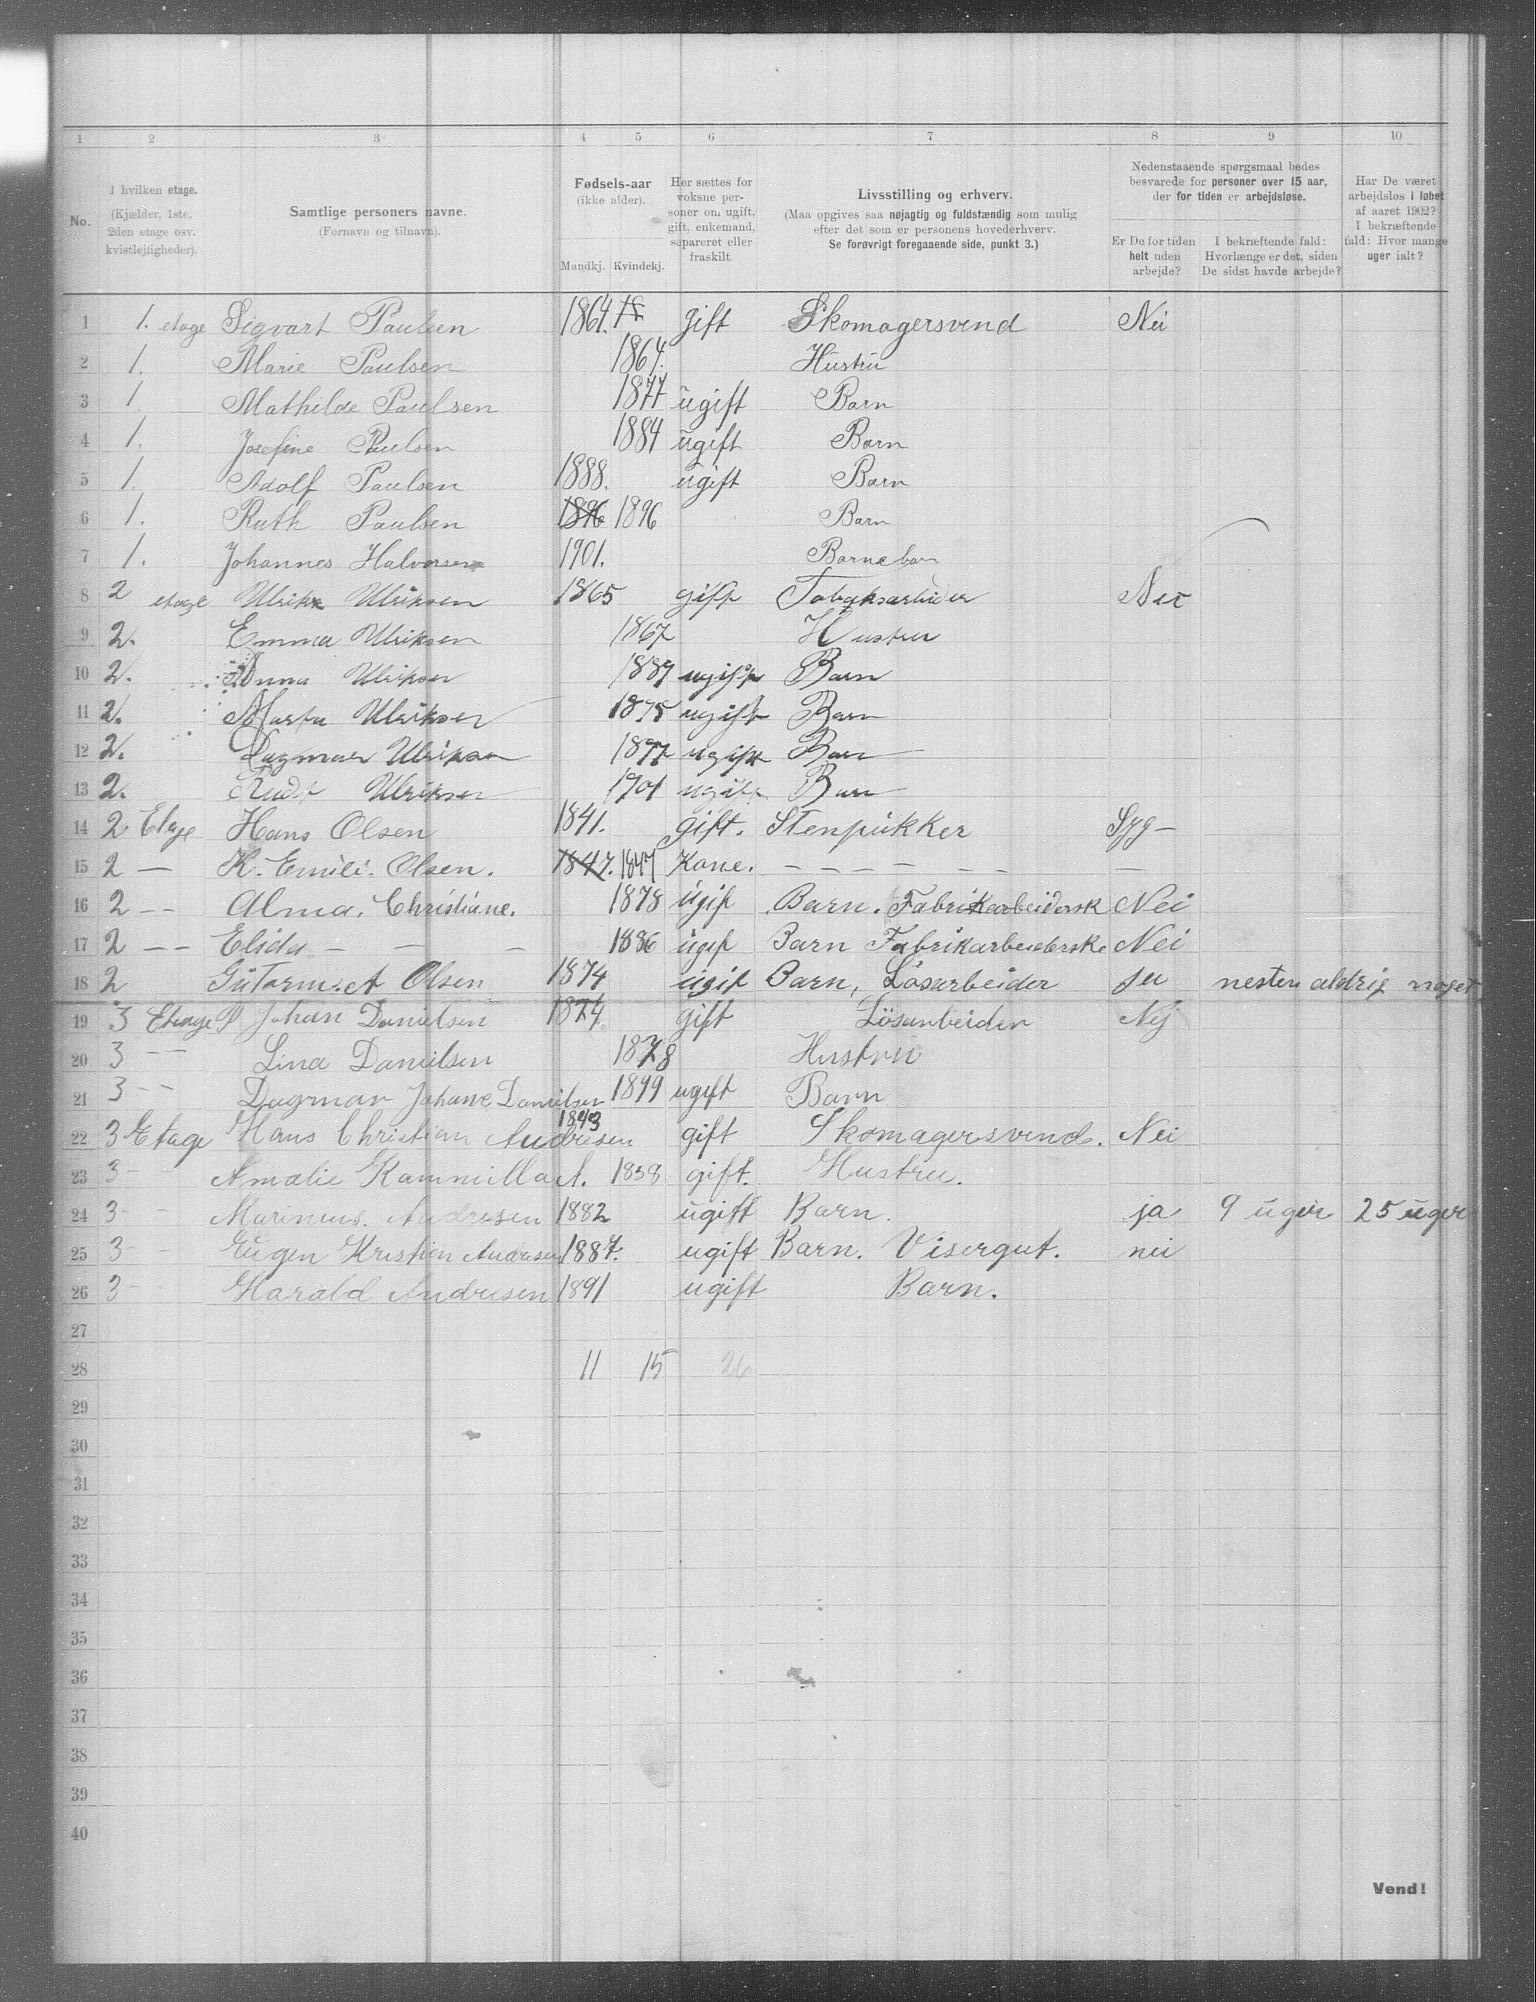 1 2 3 4 5 6 7 8 9 10
No.
I hvilken etage.
(Kjælder, 1ste, 2den etage osv. kvistleiligheder).
Samtlige personers navne.
(Fornavn og tilnavn).
Fødsels-aar
(ikke alder).
Mandkj. Kvindekj.
Her sættes for voksne personer om ugift, gift, enkemand, separeret eller fraskilt.
Livsstilling og erhverv.
(Maa opgives saa nøjagtig og fuldstændig som mulig efter det som er personens hovederhverv.
Se forøvrigt foregaaende side, punkt 3.)
Nedenstaaende spørgsmaal bedes besvarede for personer over 15 aar, der for tiden er arbejdsløse.
Er De for tiden helt uden arbejde?
I bekræftende fald: Hvorlænge er det, siden De sidst havde arbejde?
Har De været arbejdsløs i løbet af aaret 1902? I bekræftende fald: Hvor mange uger ialt?
1 1. etage Sigvart Paulsen 1864. 18 gift Skomagersvend Nei
2 1. Marie Paulsen 1864. Hustru
3 1. Mathilde Paulsen 1877 ugift Barn
4 1. Josefine Paulsen 1884 ugift Barn
5 1. Adolf Paulsen 1888. ugift Barn
6 1. Ruth Paulsen 1896 1896 Barn
7 1. Johannes Halvorsen 1901. Barnebarn
8 2 etage Ulrik Ulriksen 1865 gift Tobaksarbeider Nei
9 2. Emma Ulriksen 1867 Hustru
10 2. Anna Ulriksen 1889 ugift Barn
11 2. Marta Ulriksen 1895 ugift Barn
12 2. Dagmar Ulriksen 1897 ugift Barn
13 2. Ulriksen 1901 ugift Barn
14 2 Etage Hans Olsen 1841. gift. Stenpukker Syg —
15 2 — K. Emili. Olsen. 1847. 1847 Kone. — — — — —
16 2 — — Alma. Christiane. 1878 ugif Barn. Fabrikarbeidersk Nei
17 2 — — Elida — — — 1886 ugif Barn Fabrikarbeiderske Nei
18 2 Gutorm. A Olsen 1874 ugif Barn, Lösarbeider Ja nesten aldrig noget
19 3 Etage P Johan Danielsen 1874. gift Lösarbeider Nej
20 3 — — Lina Danielsen 1878 Hustru
21 3 — — Dagmar Johane Danielsen 1899 ugift Barn
22 3 Etage Hans Christian Andresen 1843 gift Skomagersvend. Nei
23 3 - Amalie Kammilla A. 1838 gift. Hustru.
24 3 - - Marinius. Andresen 1882 ugift Barn. ja 9 uger 25 uger
25 3 - - Eugen Kristian Andresen 1887. ugift Barn. Visergut. nei
26 3 - - Harald Andresen 1891 ugift Barn.
27
28 11 15 26
29
30
31
32
33
34
35
36
37
38
39
40
Vend!